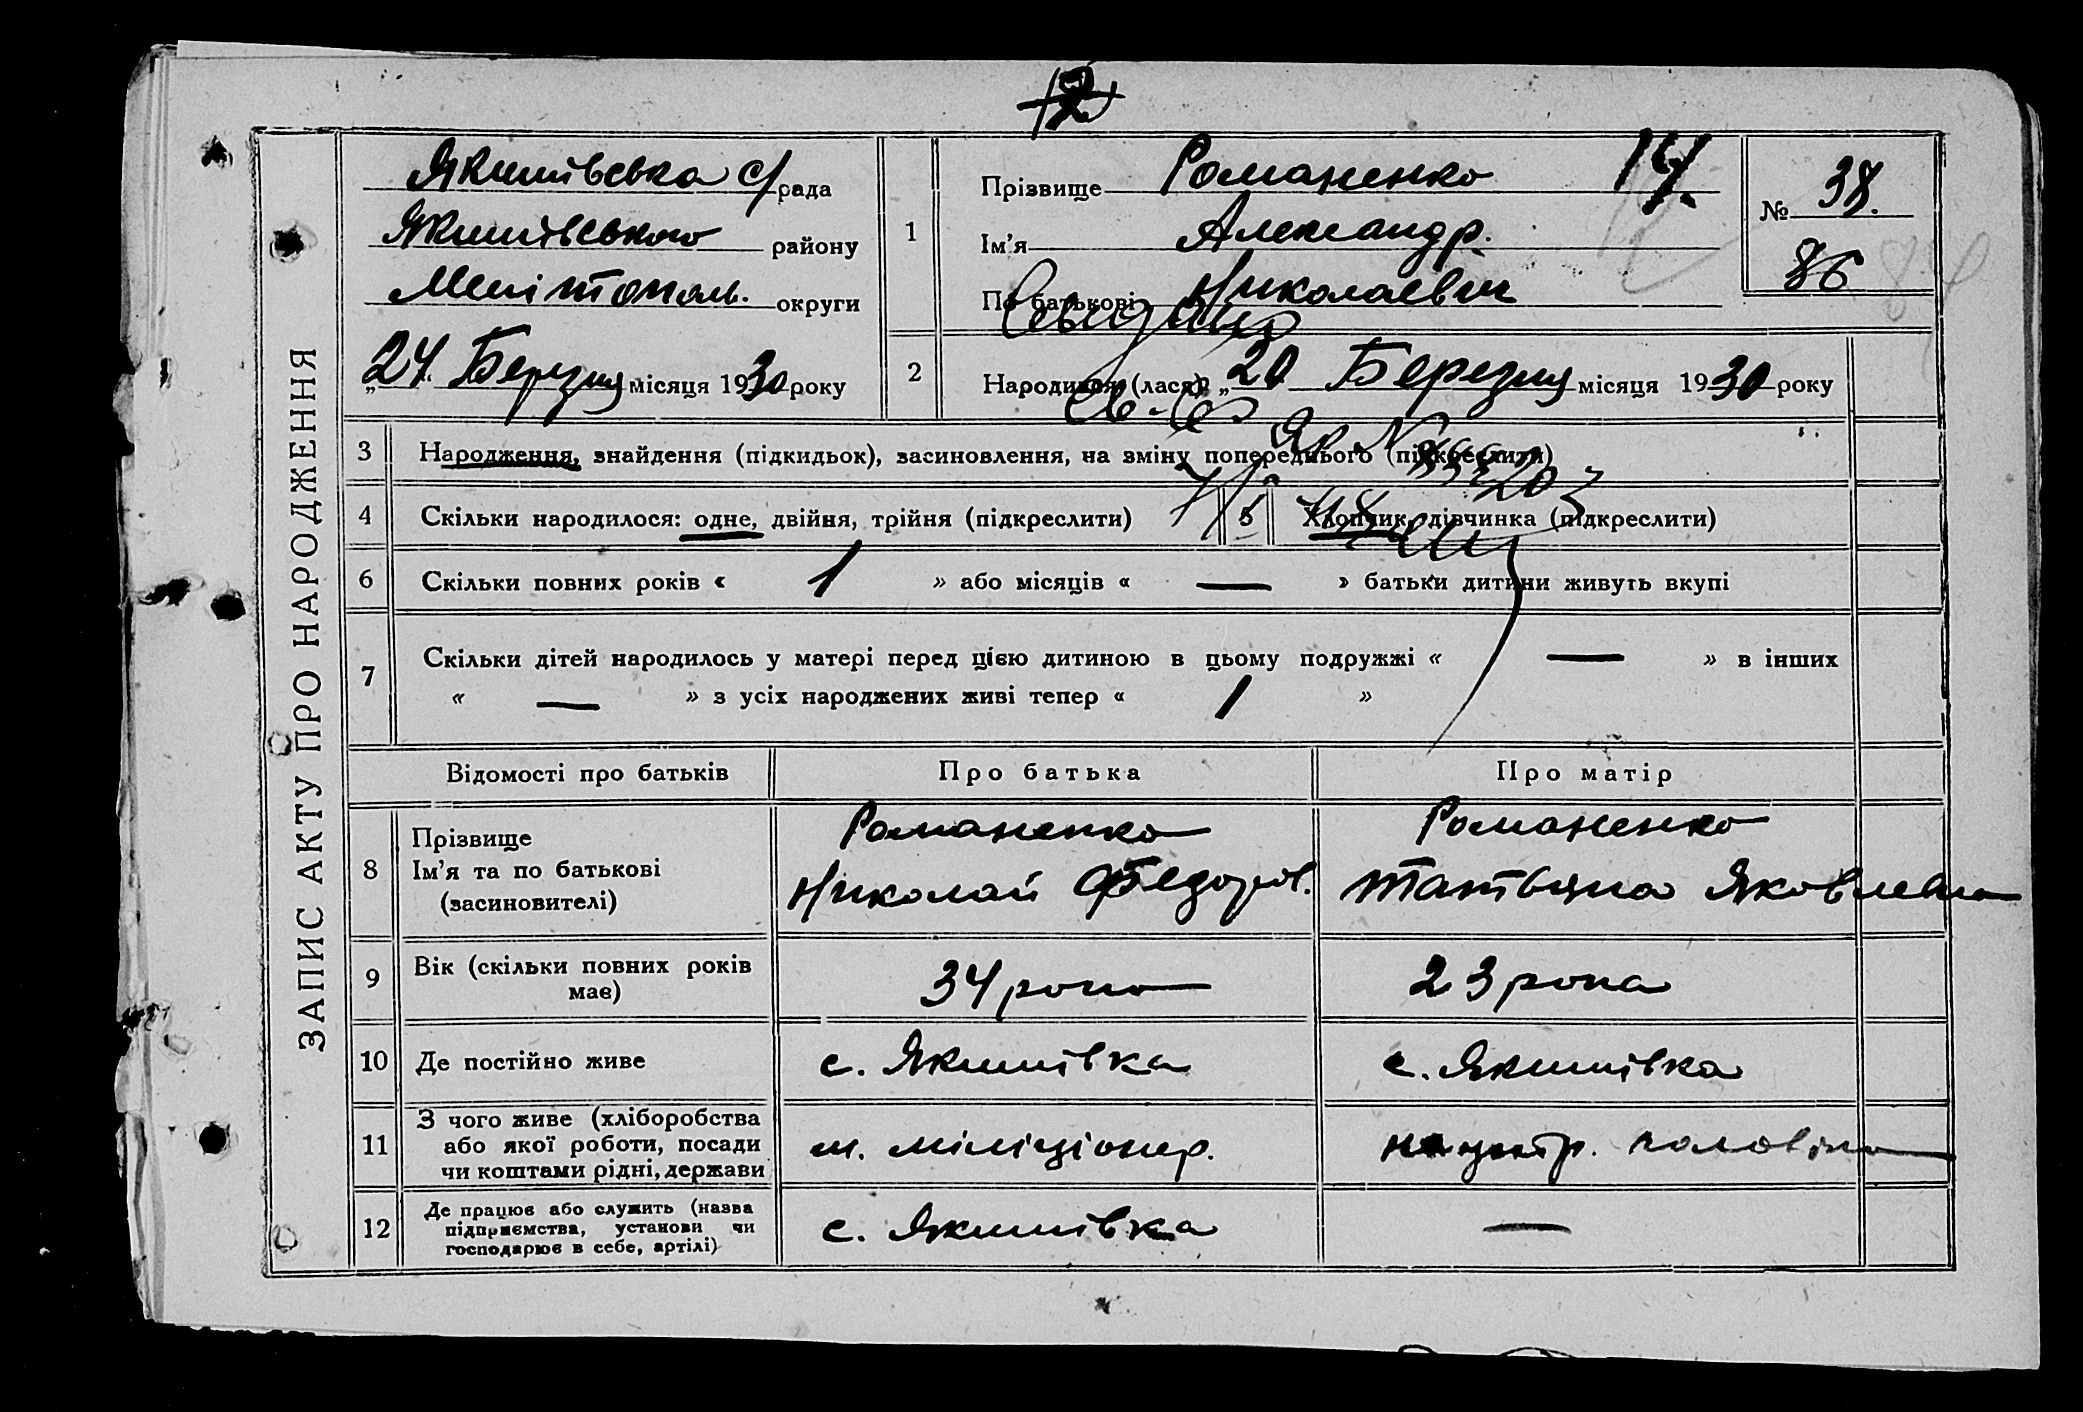 ЗАПИС АКТУ ПРО НАРОДЖЕННЯ
Якимівська с/рада
Якимівського району
Мелітополь. округи
„24 Березня місяця 1930 року
1
Прізвище Романенко
14.
Ім’я Александр.
По батькові Николаевич
№ 38.
86
84
2
Народився (лася) „20 Березня місяця 1930 року
3 Народження, знайдення (підкидьок), засиновлення, на зміну попереднього (підкреслити)
4 Скільки народилося: одне, двійня, трійня (підкреслити)
5 Хлопчик, дівчинка (підкреслити)
6 Скільки повних років « 1 » або місяців « — » батьки дитини живуть вкупі
7 Скільки дітей народилось у матері перед цією дитиною в цьому подружжі « — » в інших
« — » з усіх народжених живі тепер « 1 »
Відомості про батьків Про батька Про матір
8
Прізвище
Ім’я та по батькові
(засиновителі)
Романенко
Николай Федоров.
Романенко
Татьяна Яковлевна
9
Вік (скільки повних років
має)
34 роки
23 рока
10 Де постійно живе
с. Якимівка
с. Якимівка
11
З чого живе (хліборобства
або якої роботи, посади
чи коштами рідні, держави
м. міліціонер.
12
Де працює або служить (назва
підприємства, установи чи
господарює в себе, артілі)
с. Якимівка
—